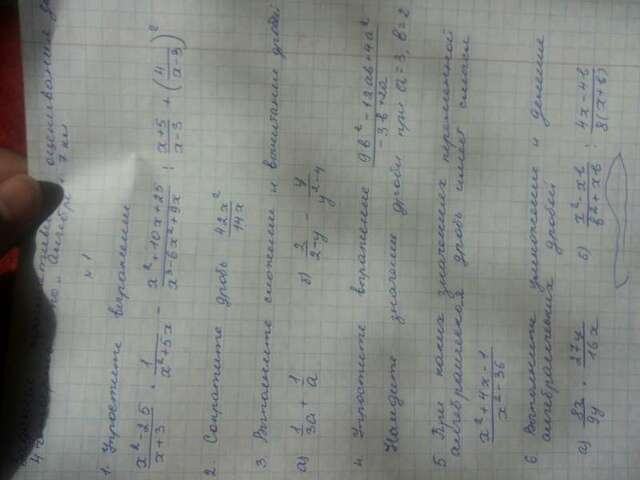 1. Упростите выражение
x²-25/x+3 · 1/x²+5x - x²+10x+25/x³-6x²+9x : x+5/x-3 + (4/x-3)²
2. Сократите дробь 42x²/14x
3. Выполните сложение и вычитание дробей
а) 1/3a + 1/a б) 2/2-y - y/y²-4
4. Упростите выражение 9b²-12ab+4a²/-3b+2a
Найдите значение дроби при a=3, b=2
5 При каких значениях переменной
алгебраическая дробь имеет смысл
x²+4x-1/x²-36
6 Выполните умножение и деление
алгебраических дробей
а) 8x/9y · 27y/16x б) x²-xb/b²+xb : 4x-4b/8(x+b)